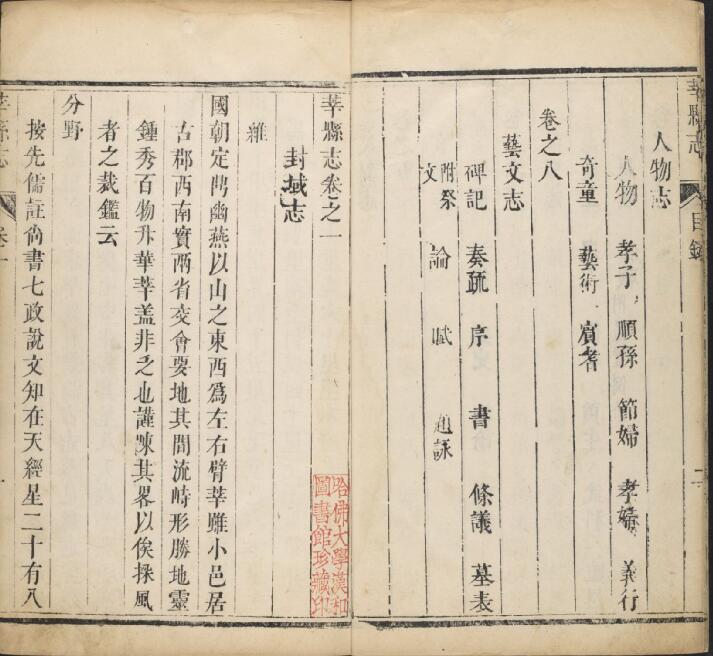 莘縣志
目錄
二
人物志
人物 孝子 順孫 節婦 孝婦 義行
奇童 藝術 賓耆
卷之八
藝文志
碑記 奏疏 序 書 條議 墓表
附祭文 論 賦 題詠
莘縣志卷之一
封域志
雜
國朝定鼎幽燕以山之東西爲左右臂莘雖小邑居
古郡西南實兩省交會要地其間流峙形勝地靈
鍾秀百物丕華莘盖非乏也謹陳其畧以俟採風
者之裁鑑云
分野
按先儒註尚書七政說文知在天經星二十有八
莘縣志
卷一
一
哈佛大學漢和
圖書館珍藏印